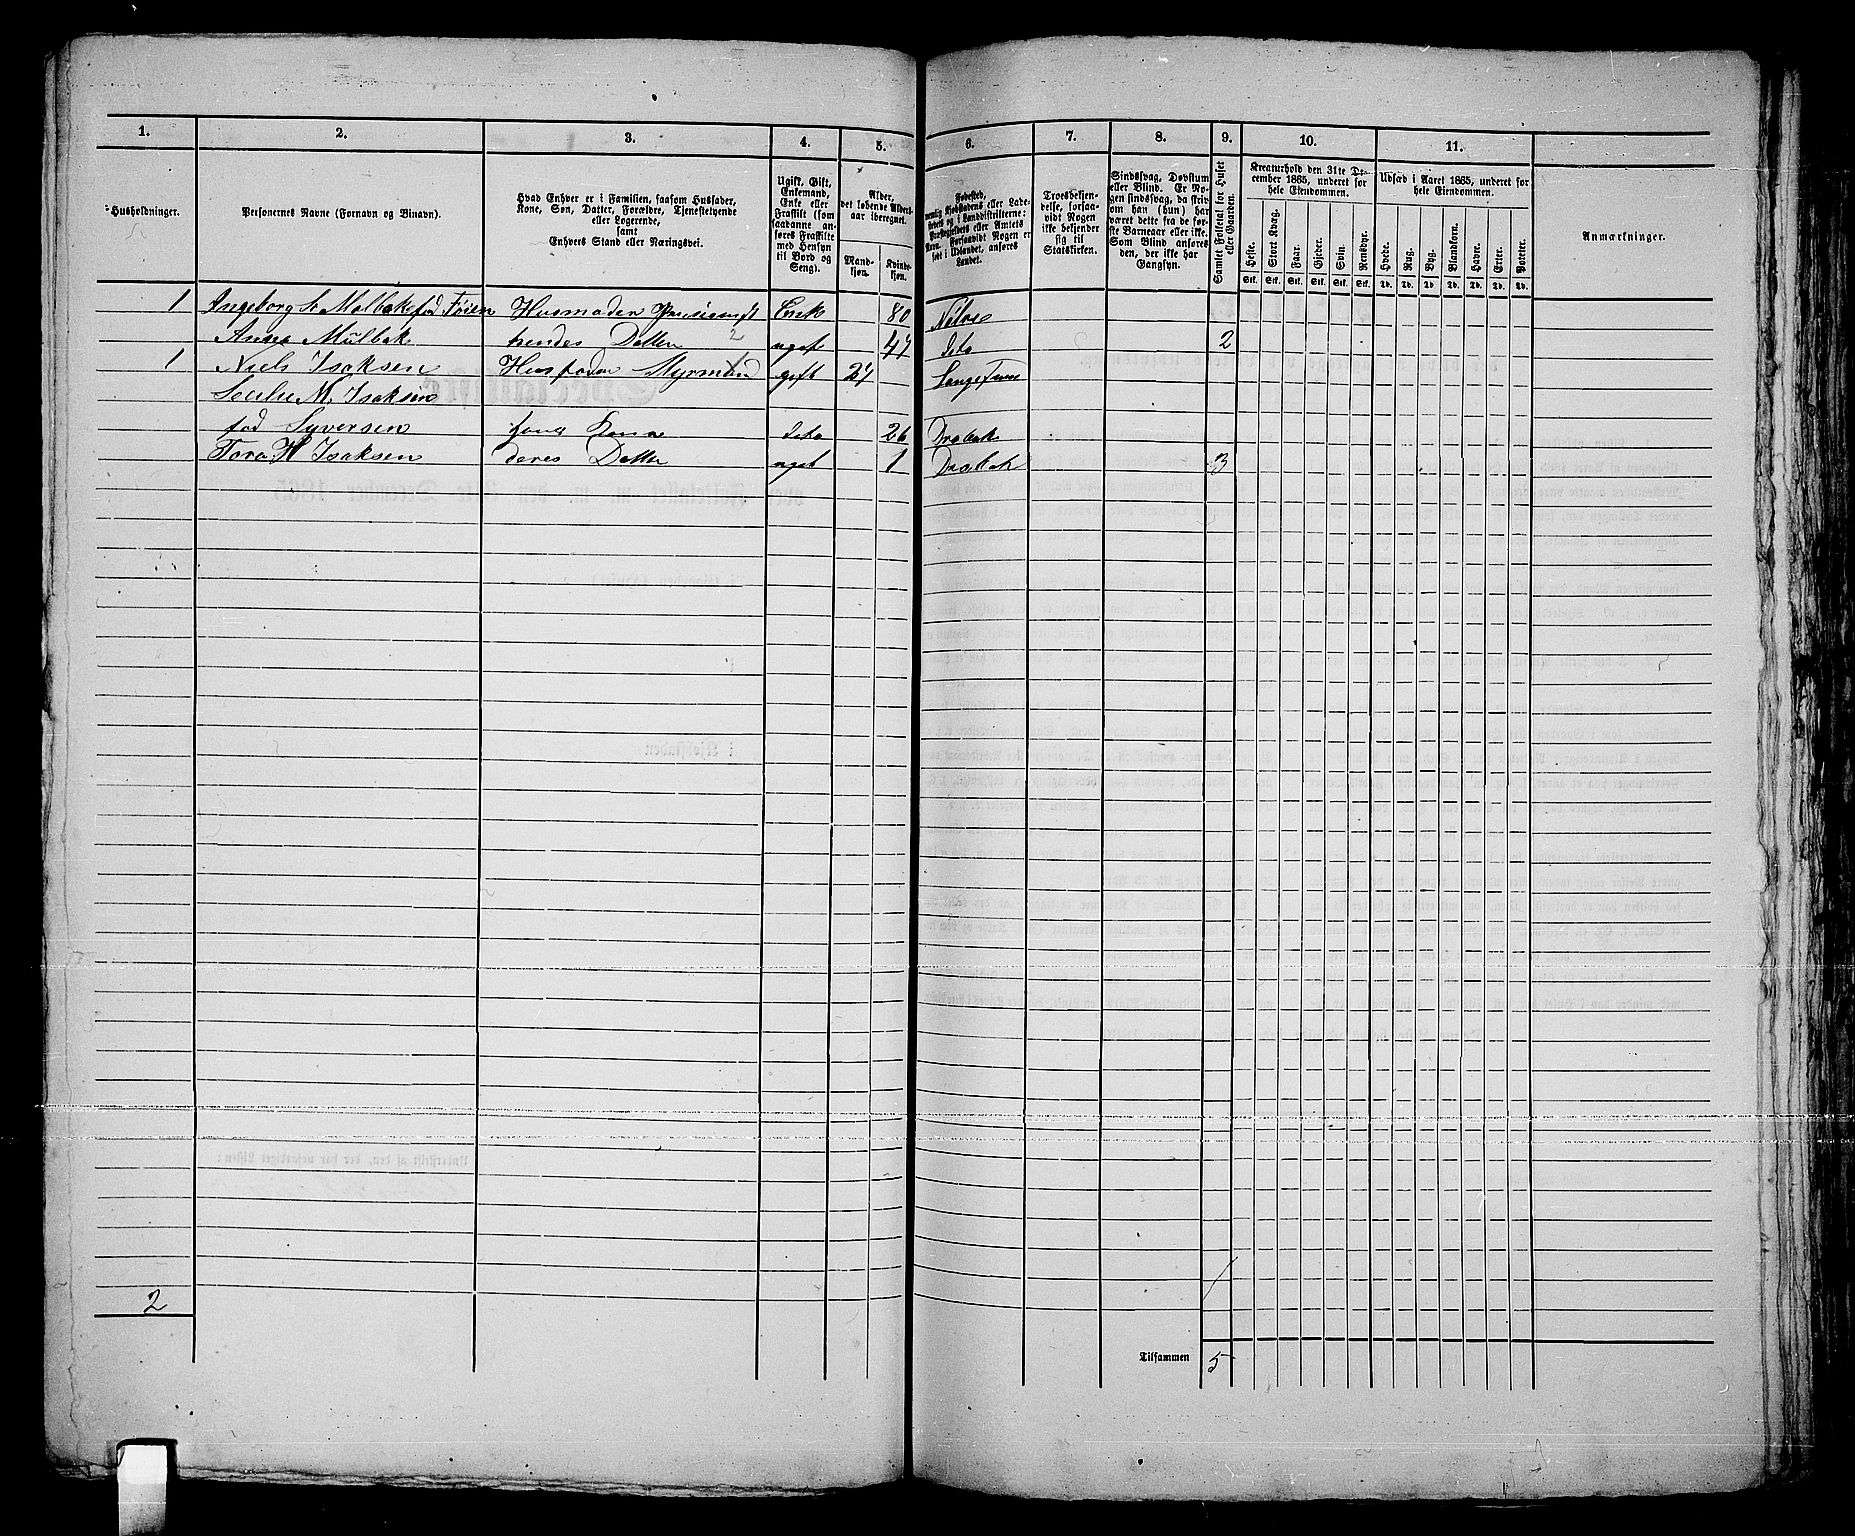 1. 2. 3. 4. 5. 6. 7. 8. 9. 10. 11.
Husholdninger.
Personernes Navne (Fornavn og Binavn).
Hvad Enhver er i Familien, saasom Husfader,
Kone, Søn, Datter, Forældre, Tjenestetyende
eller Logerende,
samt
Enhvers Stand eller Næringsvei.
Ugift, Gift,
Enkemand,
Enke eller
Fraskilt (som
saadanne an-
føres Fraskilte
med Hensyn
til Bord og
Seng).
Alder,
det løbende Alders-
aar iberegnet.
Mand-
kjøn.
Kvinde-
kjøn.
Fødested,
nemlig Kjøbstadens eller Lade-
stedets og i Landdistrikterne:
Præstegjeldets eller Amtets
Navn. Forsaavidt Nogen er
født i Udlandet, anføres
Landet.
Troesbekjen-
delse, forsaa-
vidt Nogen
ikke bekjender
sig til
Statskirken.
Sindssvag, Døvstum
eller Blind. Er No-
gen sindssvag, da skriv
om han (hun) har
været dette fra de før-
ste Barneaar eller ikke.
Som Blind anføres
den, der ikke har
Gangsyn.
Samlet Folketal for Huset
eller Gaarden.
Kreaturhold den 31te De-
cember 1865, underet for
hele Eiendommen.
Heste. Stort Kvæg. Faar. Gjeder. Svin. Rensdyr.
Stk. Stk. Stk. Stk. Stk. Stk.
Udsæd i Aaret 1865, underet for
hele Eiendommen.
Hvede. Rug. Byg. Blandkorn. Havre. Erter. Poteter.
Td. Td. Td. Td. Td. Td. Td.
Anmærkninger.
1 Ingeborg Malbak fød Føien Husmoder Enke 80
Anna Mulbak hendes Datter ugift 47 dito 2
1 Niels Isaksen Husfader Myrmand gift 27
M. Isaksen
fød Syversen hans Kone dito 26 Drøbak
Tora H Isaksen deres Datter ugift 1 Drøbak 3
2
Tilsammen 5